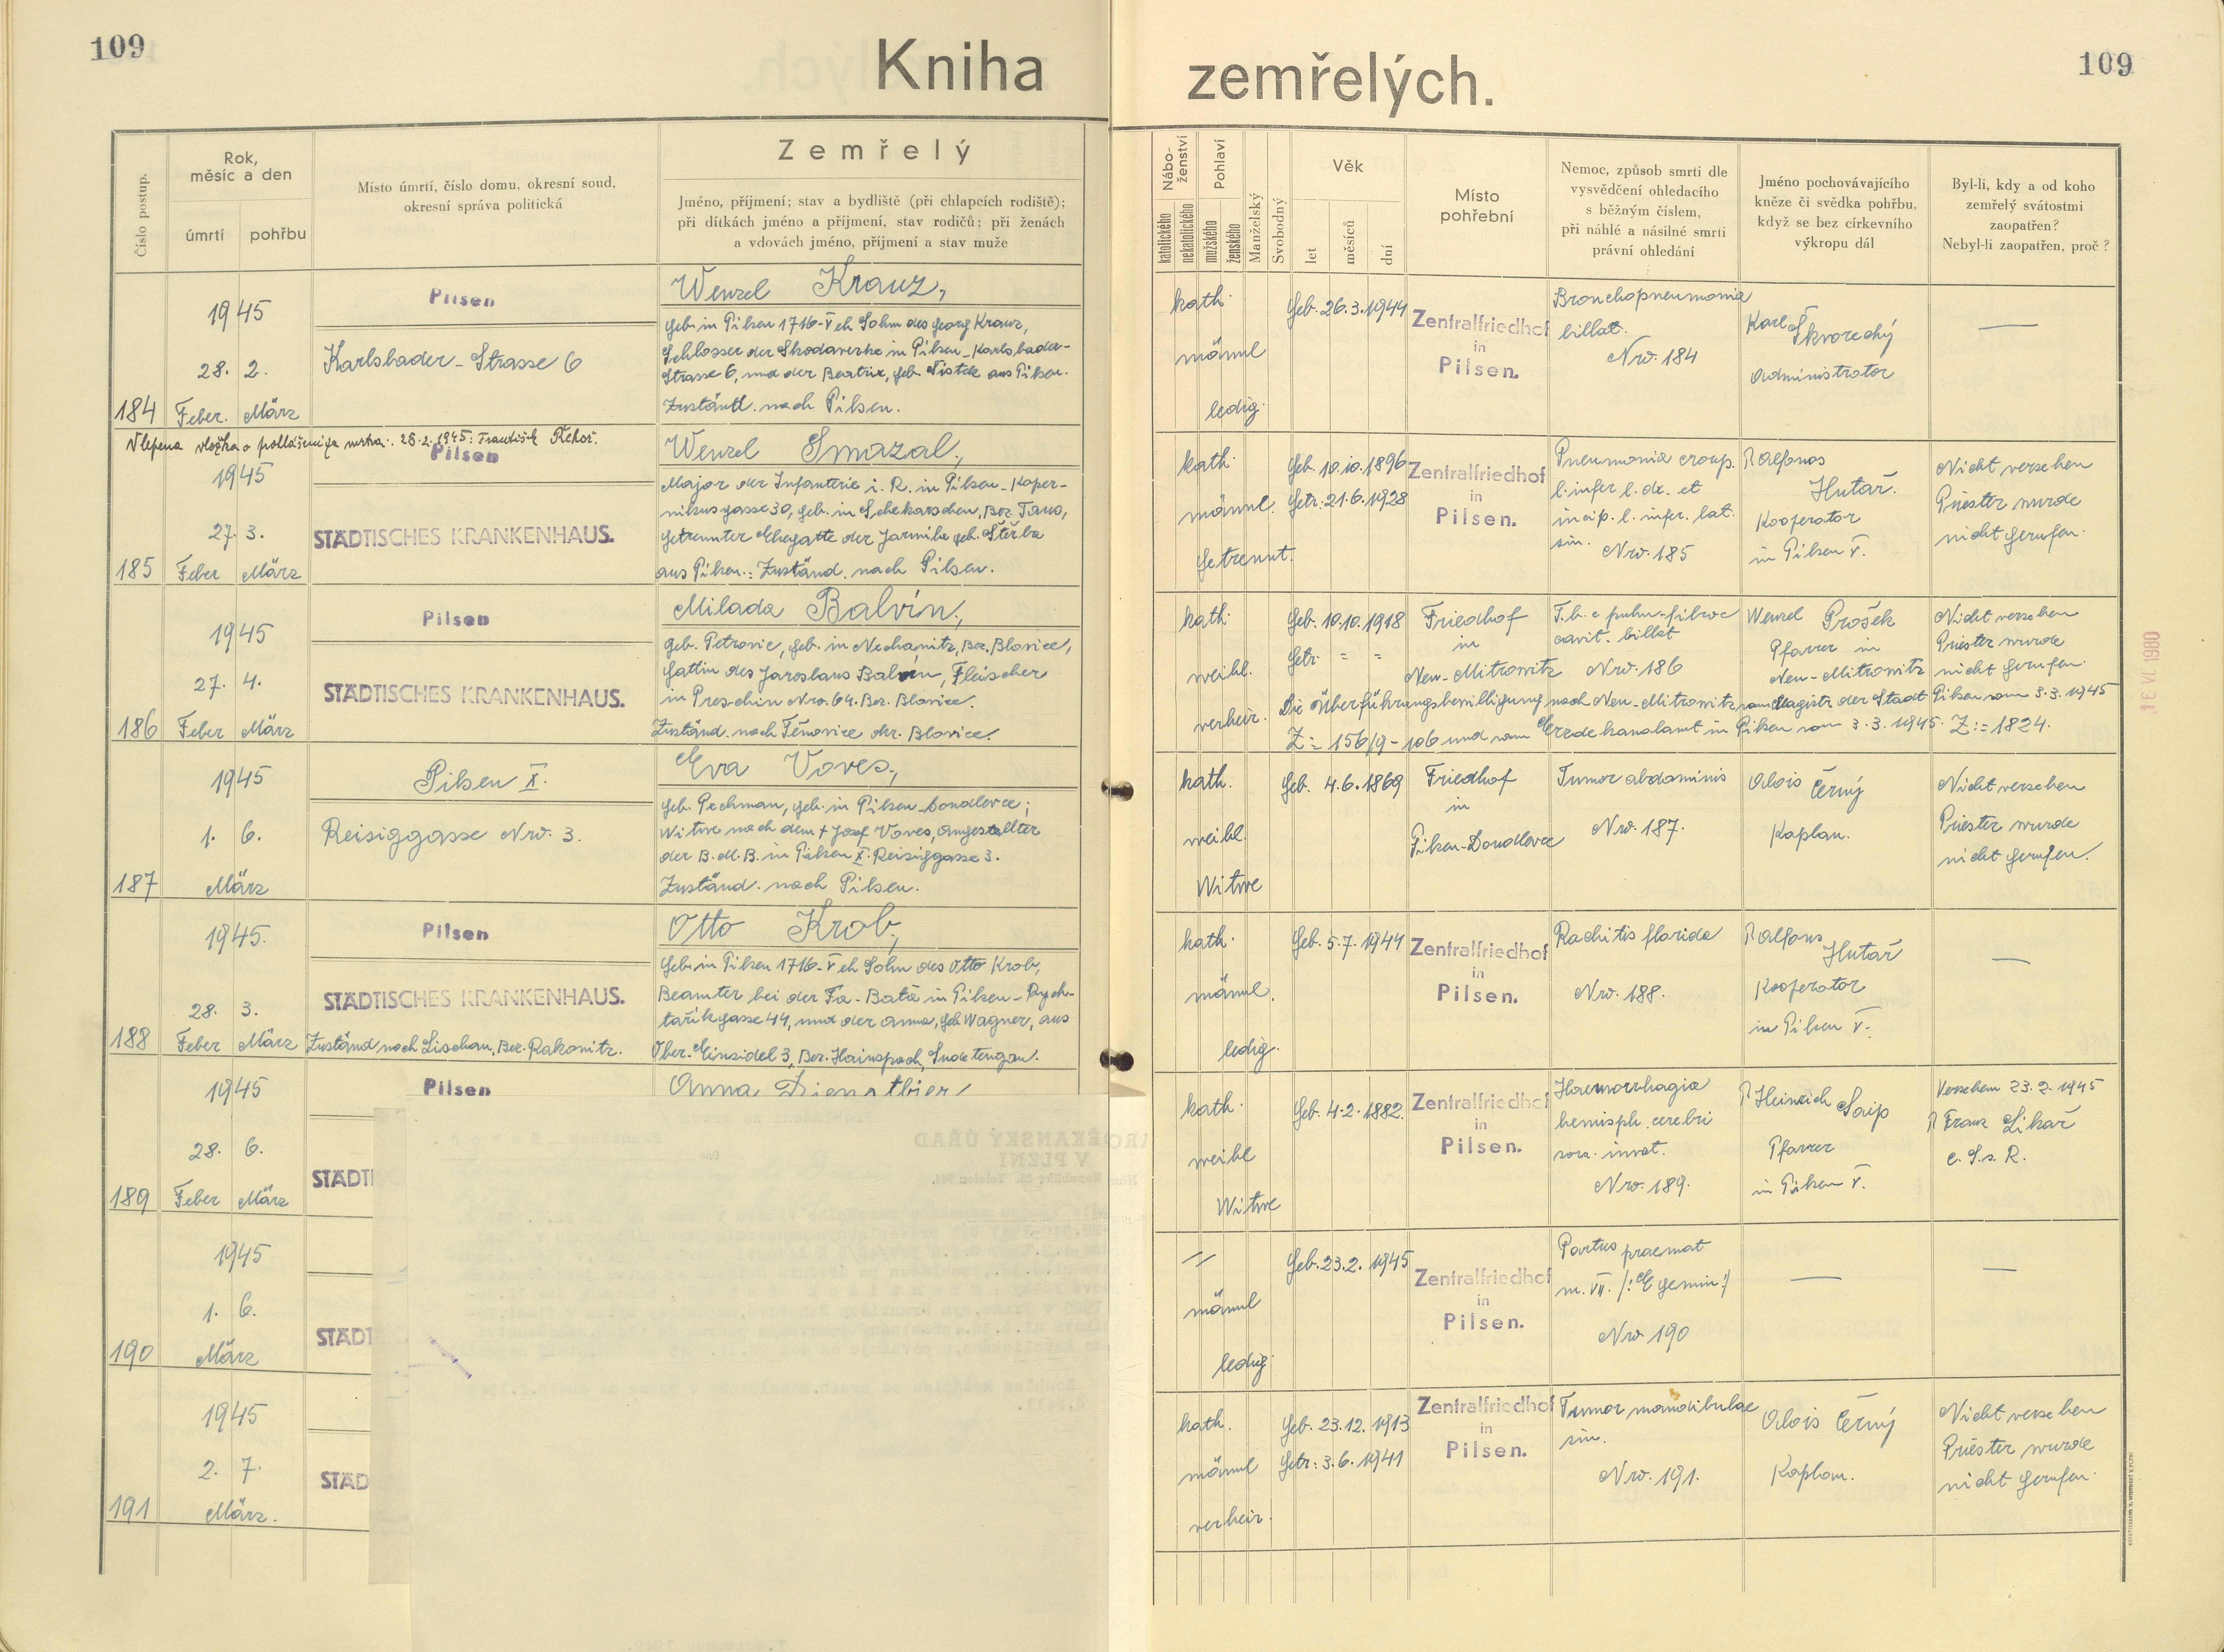 109
Kniha zemřelých.
109
Číslo postup.
Rok, měsíc a den
úmrtí
pohřbu
Místo úmrtí, číslo domu, okresní soud,
okresní správa politická
Zemřelý
Jméno, příjmení; stav a bydliště (při chlapcích rodiště);
při dítkách jméno a příjmení, stav rodičů; při ženách
a vdovách jméno, příjmení a stav muže
Nábo-
ženství
katolického
nekatolického
Pohlaví
mužského
ženského
Manželský
Svobodný
Věk
let
měsíců
dní
Místo
pohřební
Nemoc, způsob smrti dle
vysvědčení ohledacího
s běžným číslem,
při náhlé a násilné smrti
právní ohledání
Jméno pochovávajícího
kněze či svědka pohřbu,
když se bez církevního
výkropu dál
Byl-li, kdy a od koho
zemřelý svátostmi
zaopatřen?
Nebyl-li zaopatřen, proč?
184
1945
28. 2.
Feber. März
Pilsen
Karlsbader-Strasse 6
Wenzel Krauz,
geb. in Pilsen 1716-V eh Sohn des Georg Krauz,
Schlosser der Skodawerke in Pilsen-Karlsbader-
Strasse 6, und der Beatrix, geb. Sistek aus Pilsen.
Zuständ. nach Pilsen.
kath.
männl
ledig.
Geb. 26.3.1944
Zentralfriedhof
in
Pilsen.
Bronchopneumonia
billat.
Nro. 184
Karl Škvorecký
Administrator
—
Vlepena vložka o prohlášení za mrtva. 28.2.1945: František Řehoř.
185
1945
27. 3.
Feber März
Pilsen
STÄDTISCHES KRANKENHAUS.
Wenzel Smazal,
Major der Infanterie i. R. in Pilsen-Koper-
nikusgasse 30, geb. in Bez. Taus,
getrennter Ehegatte der Jarmila geb. Štěrba
aus Pilsen.: Zuständ. nach Pilsen.
kath.
männl.
getrennt.
Geb. 10.10.1896
Getr. 21.6.1928
Zentralfriedhof
in
Pilsen.
Pneumonia croup.
l. infer l. dx. et
incip. l. infer. lat.
sin. Nro. 185
P. Alfons
Hutař.
Kooperator
in Pilsen V.
Nicht versehen
Priester wurde
nicht gerufen.
186
1945
27. 4.
Feber März
Pilsen
STÄDTISCHES KRANKENHAUS.
Milada Balvín,
geb. Petrovic, geb. in Nechanitz, Bez. Blovice,
Gattin des Jaroslaus Balvín, Fleischer
in Preschin Nro. 64. Bez. Blovice.
Zuständ. nach Těnovice okr. Blovice.
kath.
weibl.
verheir.
Geb. 10.10.1918
Getr. = =
Friedhof
in
Neu-Mitrowitz
T.b.c pulm-fibroc
cavit. billat
Nro. 186
Wenzel Prošek
Pfarrer in
Neu-Mitrowitz
Nicht versehen
Priester wurde
nicht gerufen.
Die Überführungsbewilligung nach Neu-Mitrowitz vom Magistr der Stadt Pilsen vom 3.3.1945
Z:= 156/9-106 und vom Erzdekanalamt in Pilsen vom 3.3.1945. Z:= 1824.
187
1945
1. 6.
März
Pilsen X.
Reisiggasse Nro. 3.
Eva Voves,
geb. Pechman, geb. in Pilsen-Doudlevce;
Witwe nach dem † Josef Voves, Angestellter
der B.M.B. in Pilsen X. Reisiggasse 3.
Zuständ. nach Pilsen.
kath.
weibl.
Witwe
Geb. 4.6.1869
Friedhof
in
Pilsen-Doudlevce
Tumor abdominis
Nro. 187.
Alois Černý
Kaplan.
Nicht versehen
Priester wurde
nicht gerufen.
188
1945.
28. 3.
Feber März
Pilsen
STÄDTISCHES KRANKENHAUS.
Zuständ nach Lischan, Bez. Rakonitz.
Otto Krob,
Geb. in Pilsen 1716-V eh Sohn des Otto Krob,
Beamter bei der Fa-Bata in Pilsen-Rych-
tařikgasse 44, und der Anna, geb Wagner, aus
Ober-Einsidel 3, Bez. Hainspach, Sudetengau.
kath.
männl.
ledig.
Geb. 5.7.1944
Zentralfriedhof
in
Pilsen.
Rachitis florida
Nro. 188.
P. Alfons
Hutař
Kooperator
in Pilsen V.
—
189
1945
28. 6.
Feber März
Pilsen
STÄDTI
Anna Dienstbier,
kath.
weibl
Witwe
Geb. 4.2.1882.
Zentralfriedhof
in
Pilsen.
Haemorrhagia
hemisph. cerebri
Nro. 189.
P. Heinrich Saip
Pfarrer
in Pilsen V.
Versehen 23.2.1945
P. Franz Likař
C.S.s.R.
190
1945
1. 6.
März
STÄDT
//
männl
ledig.
Geb. 23.2.1945
Zentralfriedhof
in
Pilsen.
Partus praemat
m. VII. /:E gemin:/
Nro 190
—
—
191
1945
2. 7.
März.
STÄD
kath.
männl
verheir.
Geb. 23.12.1913
Getr: 3.6.1941
Zentralfriedhof
in
Pilsen.
Tumor mandibulae
sin.
Nro. 191.
Alois Černý
Kaplan.
Nicht versehen
Priester wurde
nicht gerufen.
16. VI. 1980